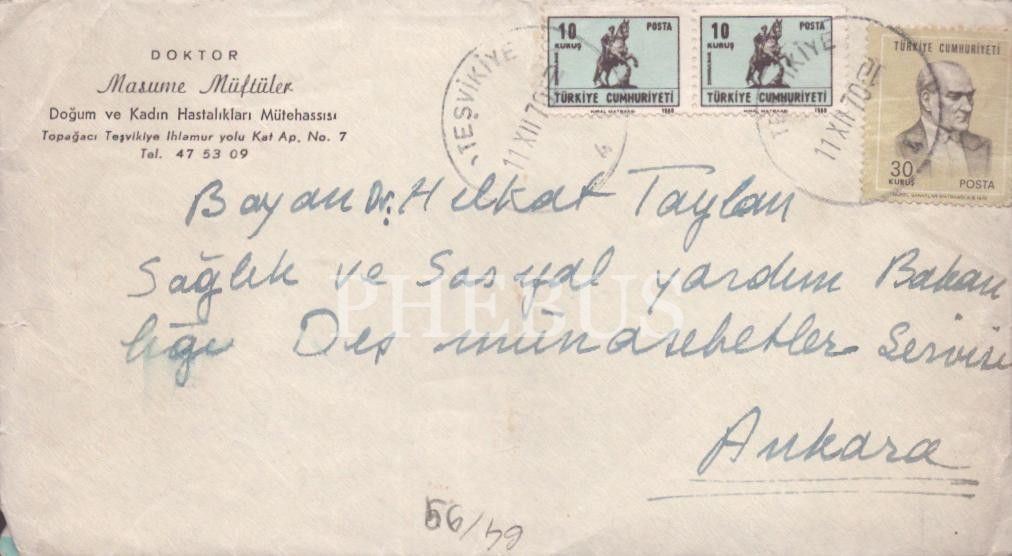 DOKTOR
Masume Müftüler
Doğum ve Kadın Hastalıkları Mütehassısı
Topağacı Teşvikiye Ihlamur yolu Kat Ap. No. 7
Tel. 47 53 09
10 KURUŞ POSTA
TÜRKİYE CUMHURİYETİ
1968
10 KURUŞ POSTA
TÜRKİYE CUMHURİYETİ
1968
TÜRKİYE CUMHURİYETİ
30 KURUŞ POSTA
TEŞVİKİYE
11 XII 70
4
TEŞVİKİYE
11 XII 70
4
Bayan Dr. Helkat Taylan
Sağlık ve Sosyal yardım Bakan
lığı Dış münasebetler Servisi
Ankara
PHEBUS